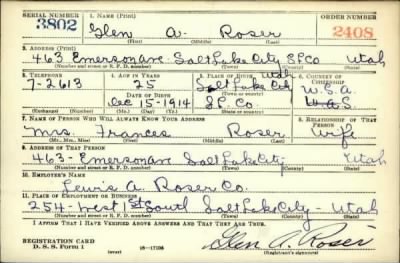 SERIAL NUMBER
1. NAME (Print)
ORDER NUMBER
3802
Glen A. Roser
2408
(First) (Middle) (Last)
2. ADDRESS (Print)
463 Emerson Ave Salt Lake City S.L. Co Utah
(Number and street or R. F. D. number) (Town) (County) (State)
3. TELEPHONE
4. AGE IN YEARS
5. PLACE OF BIRTH
6. COUNTRY OF CITIZENSHIP
7-2613
25
Utah
Salt Lake City
U.S.A
DATE OF BIRTH
Dec 15-1914
S.L. Co
U.S.
(Exchange) (Number)
(Mo.) (Day) (Yr.)
(State or country)
7. NAME OF PERSON WHO WILL ALWAYS KNOW YOUR ADDRESS
8. RELATIONSHIP OF THAT PERSON
Mrs. Frances Roser Wife
(Mr., Mrs., Miss) (First) (Middle) (Last)
9. ADDRESS OF THAT PERSON
463- Emerson Ave Salt Lake City Utah
(Number and street or R. F. D. number) (Town) (County) (State)
10. EMPLOYER'S NAME
Lewis A. Roser Co.
11. PLACE OF EMPLOYMENT OR BUSINESS
254- West 1st South Salt Lake City - Utah
(Number and street or R. F. D. number) (Town) (County) (State)
I AFFIRM THAT I HAVE VERIFIED ABOVE ANSWERS AND THAT THEY ARE TRUE.
REGISTRATION CARD
D. S. S. Form 1
(over)
Glen A. Roser
(Registrant's signature)